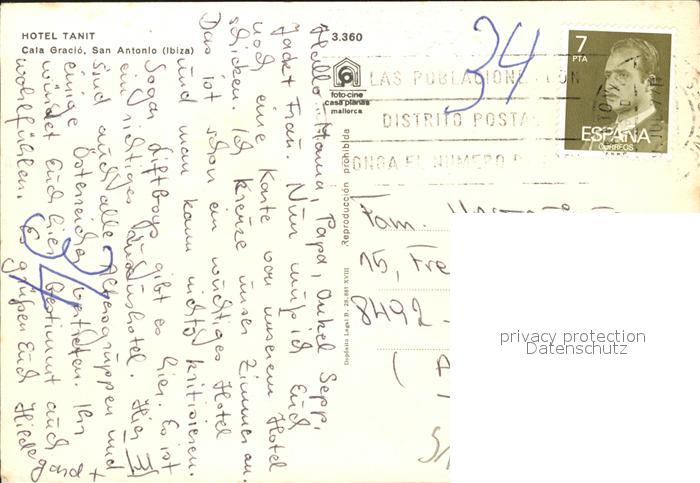 HOTEL TANIT
Cala Gració, San Antonio (Ibiza)
3.360
foto-cine
casa planas
mallorca
Reproducción prohibida
Depósito Legal B. 28.881 XVIII
34
7
PTA
ESPAÑA
CORREOS
LAS POBLACIONE CON
DISTRITO POSTA
ONGA EL NUMERO
Hallo Mama, Papa, Onkel Sepp,
Frau. Nun muß ich Euch
noch eine Karte von unserem Hotel
schicken. Ich kreuze unser Zimmer an.
Das ist schon ein wuchtiges Hotel
und man kann nichts kritisieren.
Sogar Liftboys gibt es hier. Es ist
ein richtiges Luxushotel. Hier
sind auch alle Altersgruppen und
einige Österreicher vertreten. Ihr
würdet Euch hier bestimmt auch
wohlfühlen. Es grüßen Euch Hildegard +
34
Fam.
15, Fre
8492
privacy protection
Datenschutz